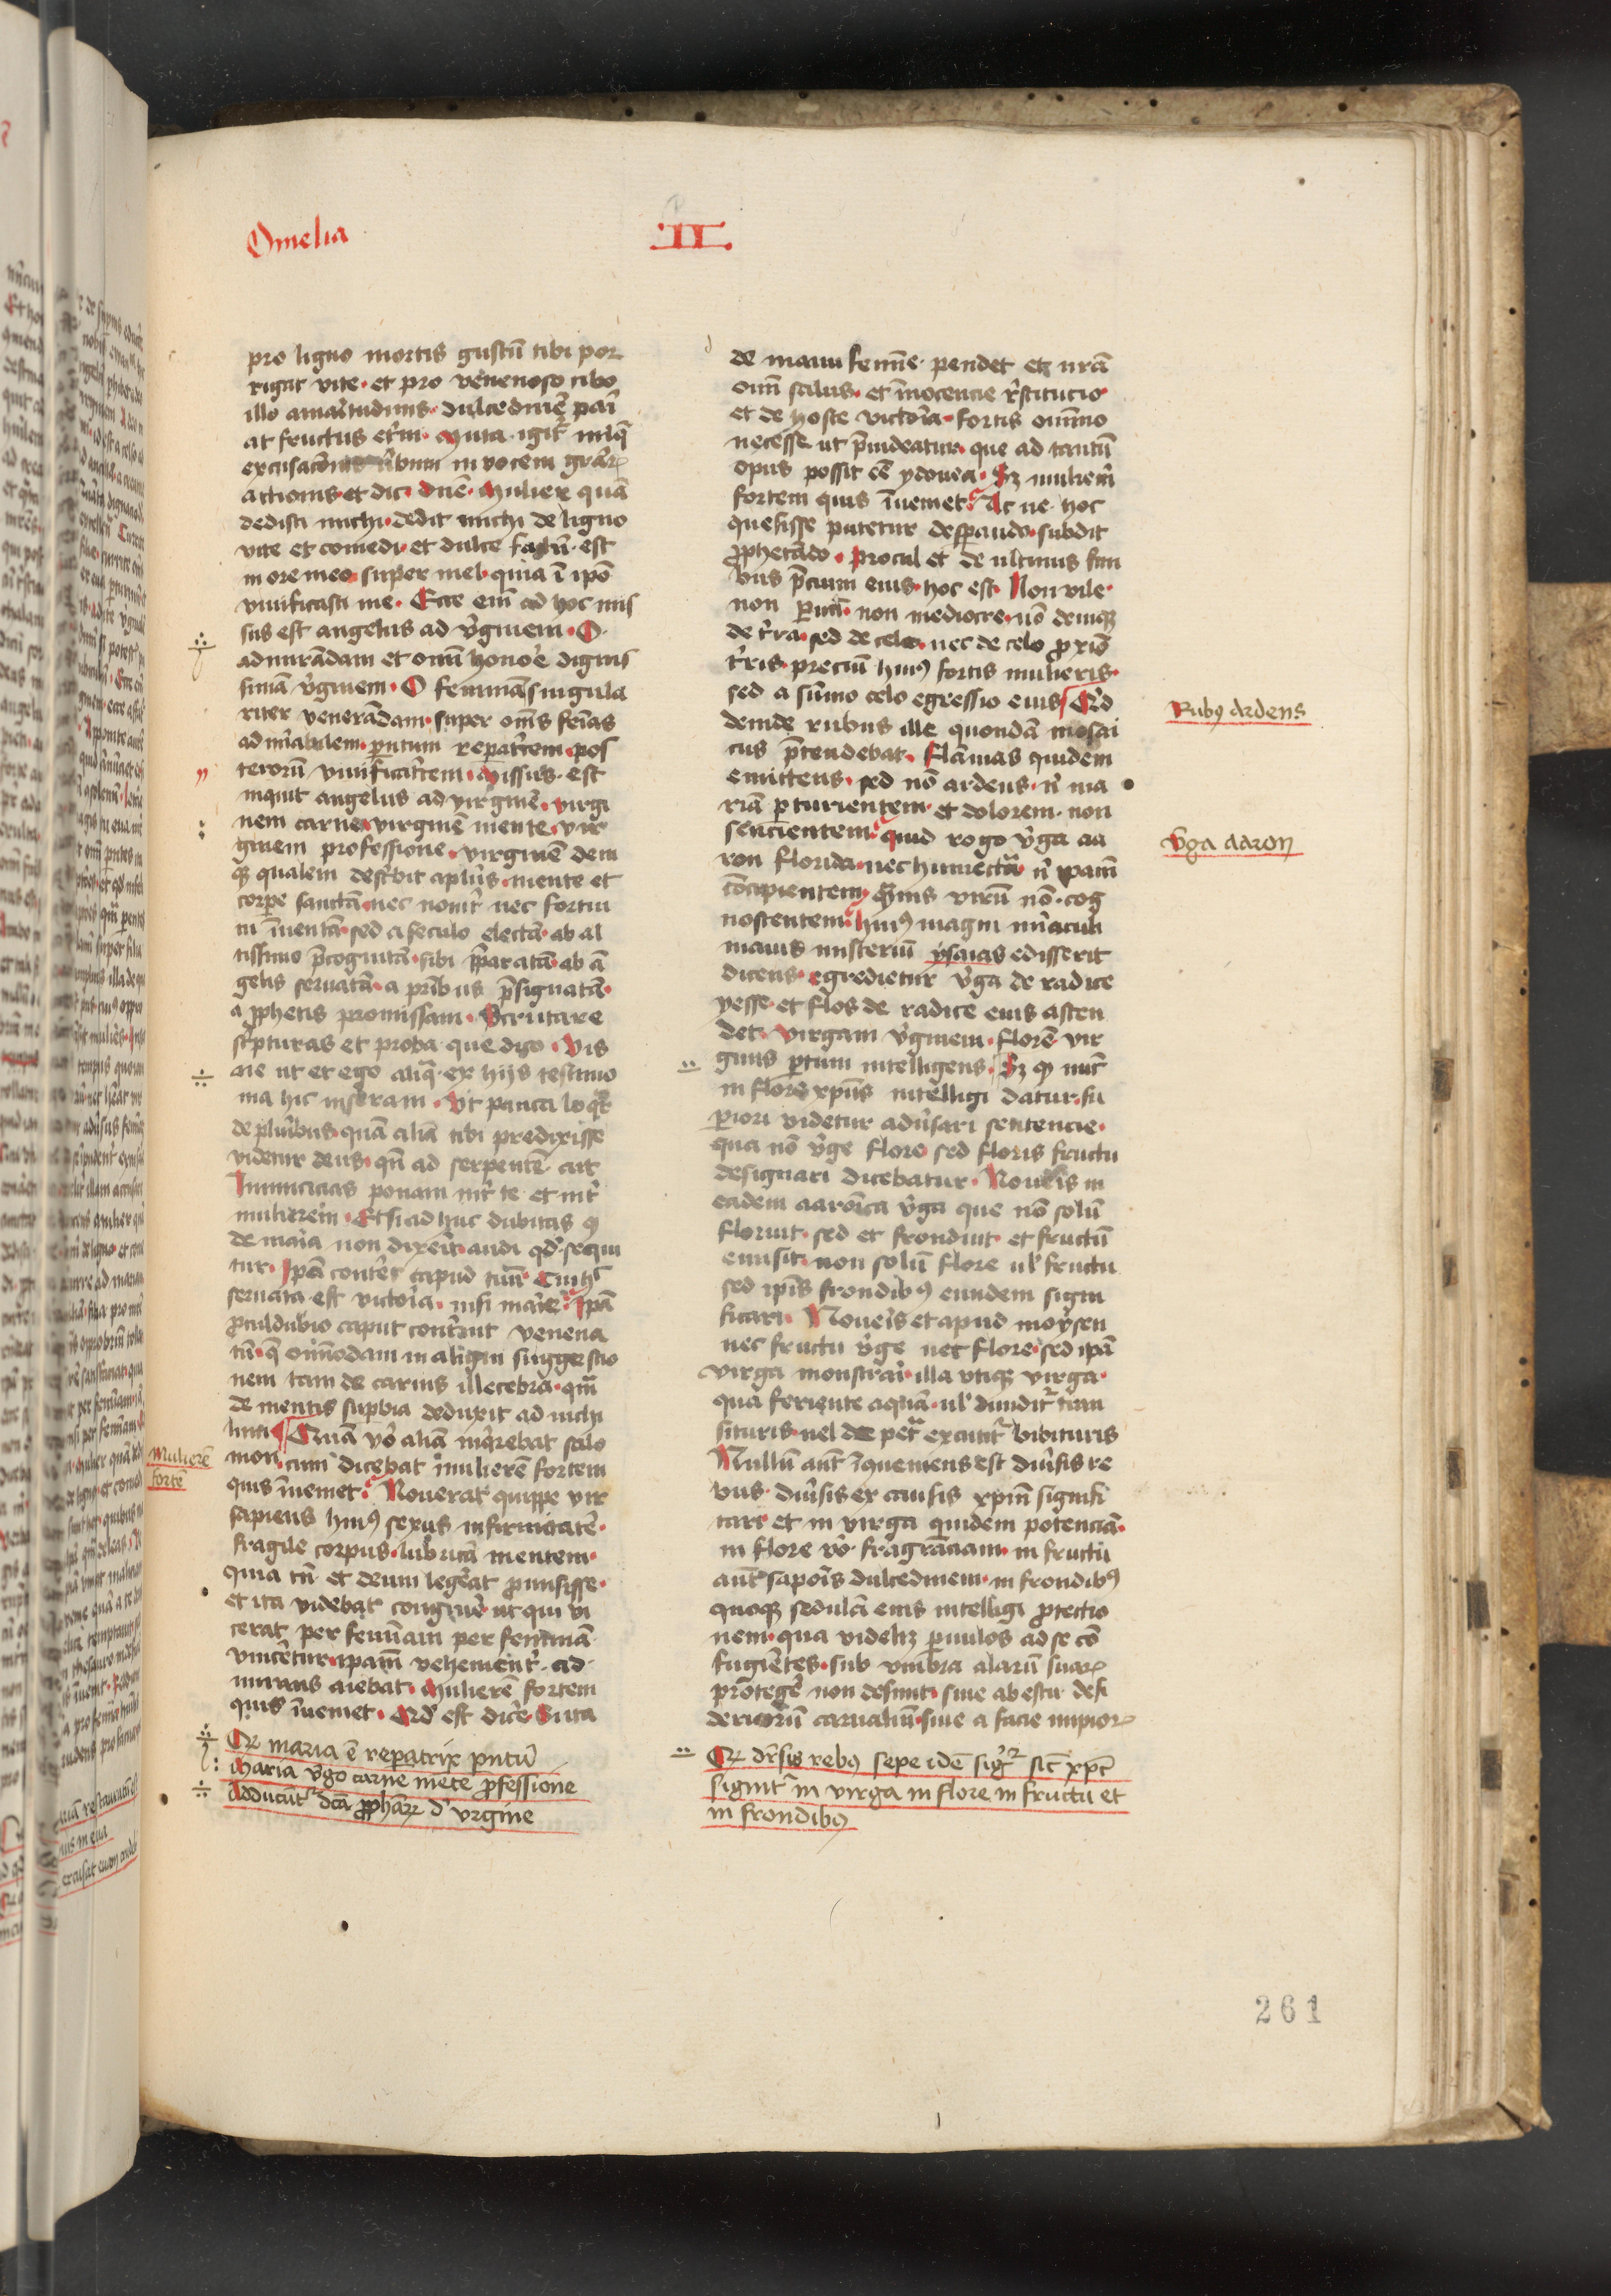 Omelia II.
pro ligno mortis gustū tibi por
rigat vite. et pro venenoso cibo
illo amaritudinis. dulcedinē pari
at fructus eterni. Muta igit iniq̄
excusacionis v̄bum in vocem grar̄
actionis. et dic. dnē. Mulier quā
dedisti michi. dedit michi de ligno
vite et comedi. et dulce factū est
in ore meo super mel. quia ī ipō
vivificasti me. Ecce em̄ ad hoc mis
sus est angelus ad v̄ginem. O
admirādam et omī honore dignis
simā v̄ginem. O feminā singula
riter venerādam. super oēs feīas
admirabilem. pntum repatricem. pos
terorū vivificatricem. Missus est
inquit angelus ad virginē. virgi
nem carne. virginē mente. vir
ginem professione. virginē deni
qꝫ qualem describit aplūs. mente et
corpe sanctā. nec noviter nec fortui
tu īventā. sed a seculo electā. ab al
tissimo p̄cognitā. sibi p̄paratā. ab ā
gelis servatā. a prībus p̄signatā.
a p̄phetis promissam. Scrutare
sc̄pturas et proba que dico. Vis
ne ut et ego aliq̄ ex hijs testimo
nia hic inseram. Ut pauca loqr
de plurībus. quā aliā tibi predixisse
videtur deus. qn̄ ad serpentē ait
Inimicicias ponam int̄ te et int̄
mulierem. Et si ad huc dubitas ꝙ
de maria non dixerit. audi qd̄ sequi
tur. Ipa conteret capud tuū. Cui hec
servata est victoria. nisi marie. Ipā
proculdubio caput contrivit venena
tū. q̄ omīmodam maligni suggestio
nem tam de carnis illecebra. qm̄
de mentis supbia deduxit ad nichi
lum. Quā vō aliā inq̄rebat salo
mon cum dicebat mulierē fortem
quis īveniet. Noverat quippe vir
sapiens huiꝰ sexus infirmitatē.
fragile corpus. lubricā mentem.
Quia tn̄ et deum legerat promisisse.
et ita videbat congruere ut qui vi
cerat per feminam per feminā
vinceretur. ipam vehementer ad
mirans aiebat. Mulierē fortem
quis īveniet. Qd̄ est dicere. Si ita
Mulierē
fortē
Qꝛ maria ē repatrix pntū
Maria v̄go carne mēte p̄fessione
Adducūt̄ dcā p̄phār̄ d' vrgine
de manu femīe pendet et nrā
oīm salus. et īnocencie restitutio
et de hoste victoria. fortis omīno
necesse ut p̄videatur. que ad tantū
opus possit eē ydonea. Sꝫ mulierē
fortem quis īveniet. Ac ne hoc
quesisse putetur desperando. subdit
prophetādo. Procul et de ultimis fini
bus p̄cium eius. hoc est. Non vile.
non parvū. non mediocre. nō deniqꝫ
de terra. sed de celo. nec de celo p̄xīo
terris precium huiꝰ fortis mulieris.
sed a sūmo celo egressio eius. Quid
deinde rubus ille quondā mosai
cus p̄tendebat. flāmas quidem
emittens. sed nō ardens. nisi ma
riā parturientem. et dolorem non
sencientem. quid rogo v̄ga aa
ron florida. nec humectata. nisi ipam
cōcipientem. quāvis virū nō cog
noscentem. Huiꝰ magni miraculi
maius misteriū ysaias edisserit
dicens. egredietur v̄ga de radice
yesse. et flos de radice eius ascen
det. virgam v̄ginem. florē vir
ginis partum intelligens. Sꝫ ꝙ nunc
in flore xpūs intelligi datur. su
periori videtur adversari sentencie.
qua nō v̄ge flore sed floris fructu
designari dicebatur. Noveris in
eadem aaronica v̄ga que nō solū
floruit. sed et fronduit et fructū
emisit. non solū flore ul' fructu
sed ipīs frondibꝰ eundem signi
ficari. Noveris et apud moysen
nec fructu v̄ge nec flore. sed ipā
virga monstrari. illa utiqꝫ virga.
qua feriente aquā. ul' dividit̄ tran
situris. vel de petra excutit̄ bibituris
Nullū aut īqueniens est diversis re
bus diversis ex causis xpm̄ signifi
cari. et in virga quidem potenciā.
in flore vō fragranciam. in fructu
aut̄ saporis dulcedinem. in frondibꝰ
quoqꝫ sedulā eius intelligi protectio
nem. qua videlꝫ parvulos ad se cō
fugiētes. sub umbra alarū suar̄
protegere non desinit. sive ab estu desi
deriorū carnaliū. sive a facie impior̄
Rubꝰ Ardens
v̄ga aaron
Qꝛ dr̄sis rebꝰ sepe idē sigr̄ sic̄ xp̄c
signit̄ in virga in flore in fructu et
in frondibꝰ
261